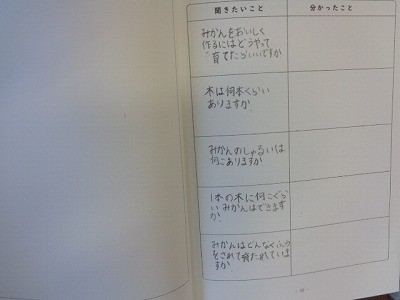 聞きたいこと 分かったこと
みかんをおいしく
作るにはどうやって
育てたらいいですか
木は何本くらい
ありますか
みかんのしゅるいは
何こありますか
1本の木に何こぐら
いみかんはできます
か
みかんはどんなくふう
をされて育たれていま
すか